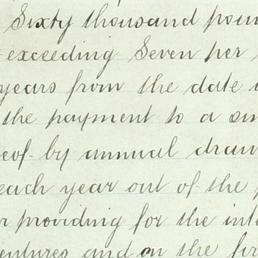 Sixty thousand poun
exceeding Seven per
years from the date
the payment to a sin
eof by annual draw
each year out of the
r providing for the inte
entures and on the fir